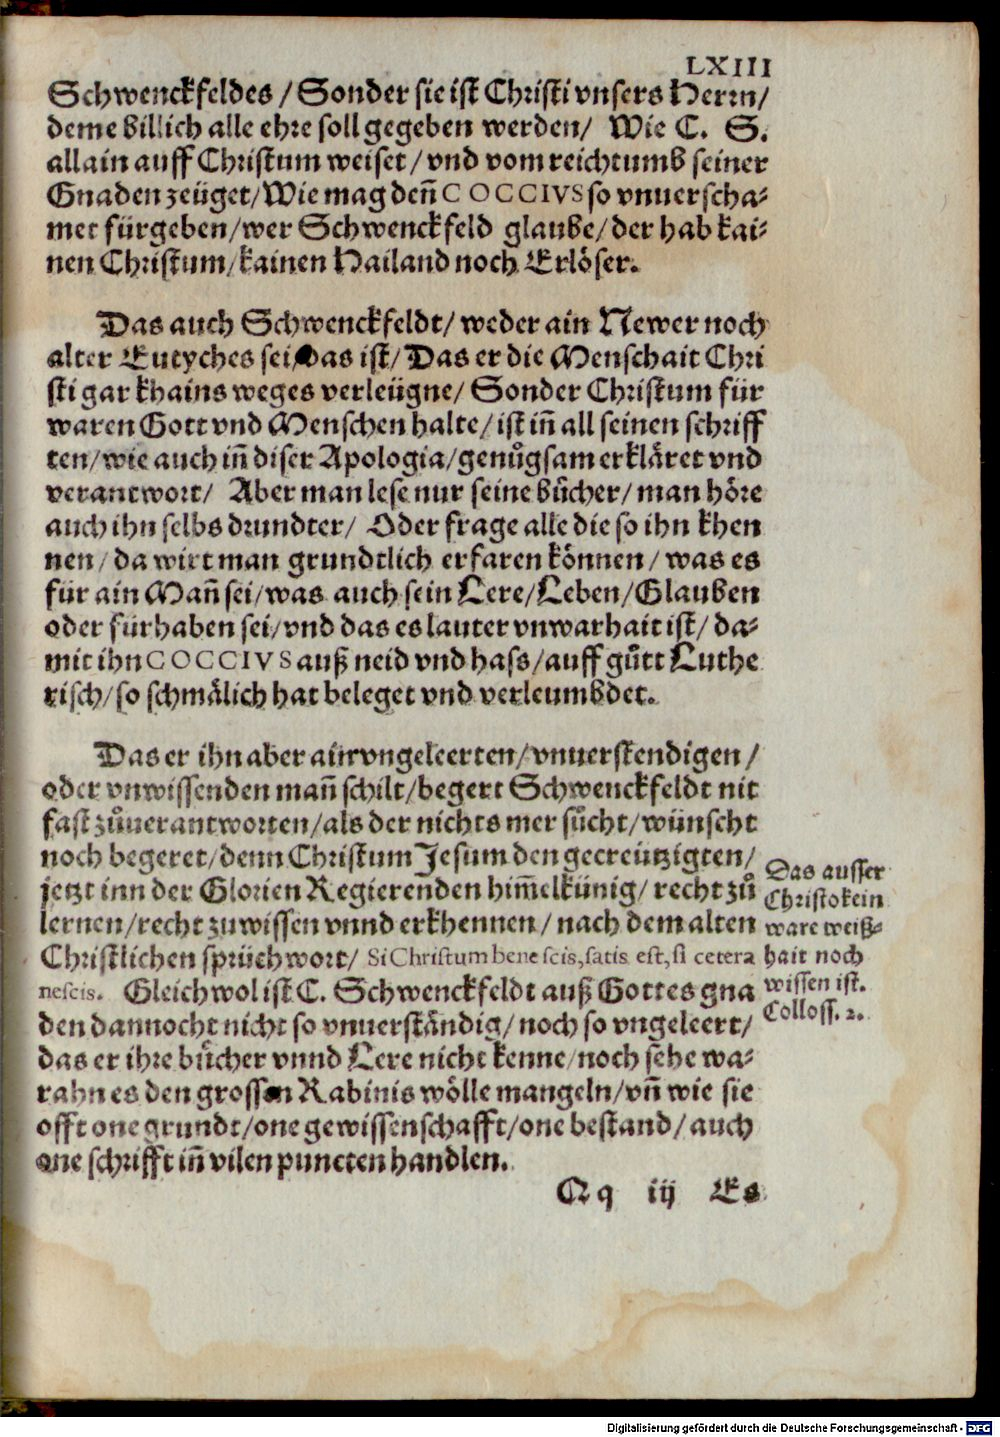 LXIII
Schwenckfeldes / Sonder sie ist Christi vnsers Herrn/
deme billich alle ehre soll gegeben werden/ Wie C. S.
allain auff Christum weiset / vnd vom reichtumb seiner
Gnaden zeüget/ Wie mag den̄ COCCIVS so vnuerscha-
met fürgeben/ wer Schwenckfeld glaube/ der hab kai-
nen Christum/ kainen Hailand noch Erlöser.
Das auch Schwenckfeldt/ weder ain Newer noch
alter Eutyches sei/ das ist/ Das er die Menschait Chri
sti gar khains weges verleügne/ Sonder Christum für
waren Gott vnd Menschen halte/ ist in̄ all seinen schriff
ten/ wie auch in̄ diser Apologia/ genůgsam erkläret vnd
verantwort/ Aber man lese nur seine bücher/ man höre
auch ihn selbs drundter/ Oder frage alle die so ihn khen
nen/ da wirt man grundtlich erfaren können/ was es
für ain Man̄ sei/ was auch sein Lere/ Leben/ Glauben
oder fürhaben sei/ vnd das es lauter vnwarhait ist/ da-
mit ihn COCCIVS auß neid vnd hass/ auff gůtt Luthe
risch/ so schmälich hat beleget vnd verleumbdet.
Das er ihn aber ain vngeleerten/ vnuerstendigen /
oder vnwissenden man̄ schilt/ begert Schwenckfeldt nit
fast zůuerantworten/ als der nichts mer sůcht/ wünscht
noch begeret/ denn Christum Jesum den gecreützigten/
jetzt inn der Glorien Regierenden him̄elkünig/ recht zů
lernen/ recht zuwissen vnnd erkhennen/ nach dem alten
Christlichen sprüchwort/ Si Christum bene scis, satis est, si cetera
nescis. Gleichwol ist C. Schwenckfeldt auß Gottes gna
den dannocht nicht so vnuerständig/ noch so vngeleert/
das er ihre bücher vnnd Lere nicht kenne/ noch sehe wa-
rahn es den grossen Rabinis wölle mangeln/ vn̄ wie sie
offt one grundt/ one gewissenschafft/ one bestand/ auch
one schrifft in̄ vilen puncten handlen.
Das ausser
Christo kein
ware weiß-
hait noch
wissen ist.
Colloss. 2.
Qq iij Es
Digitalisierung gefördert durch die Deutsche Forschungsgemeinschaft - DFG